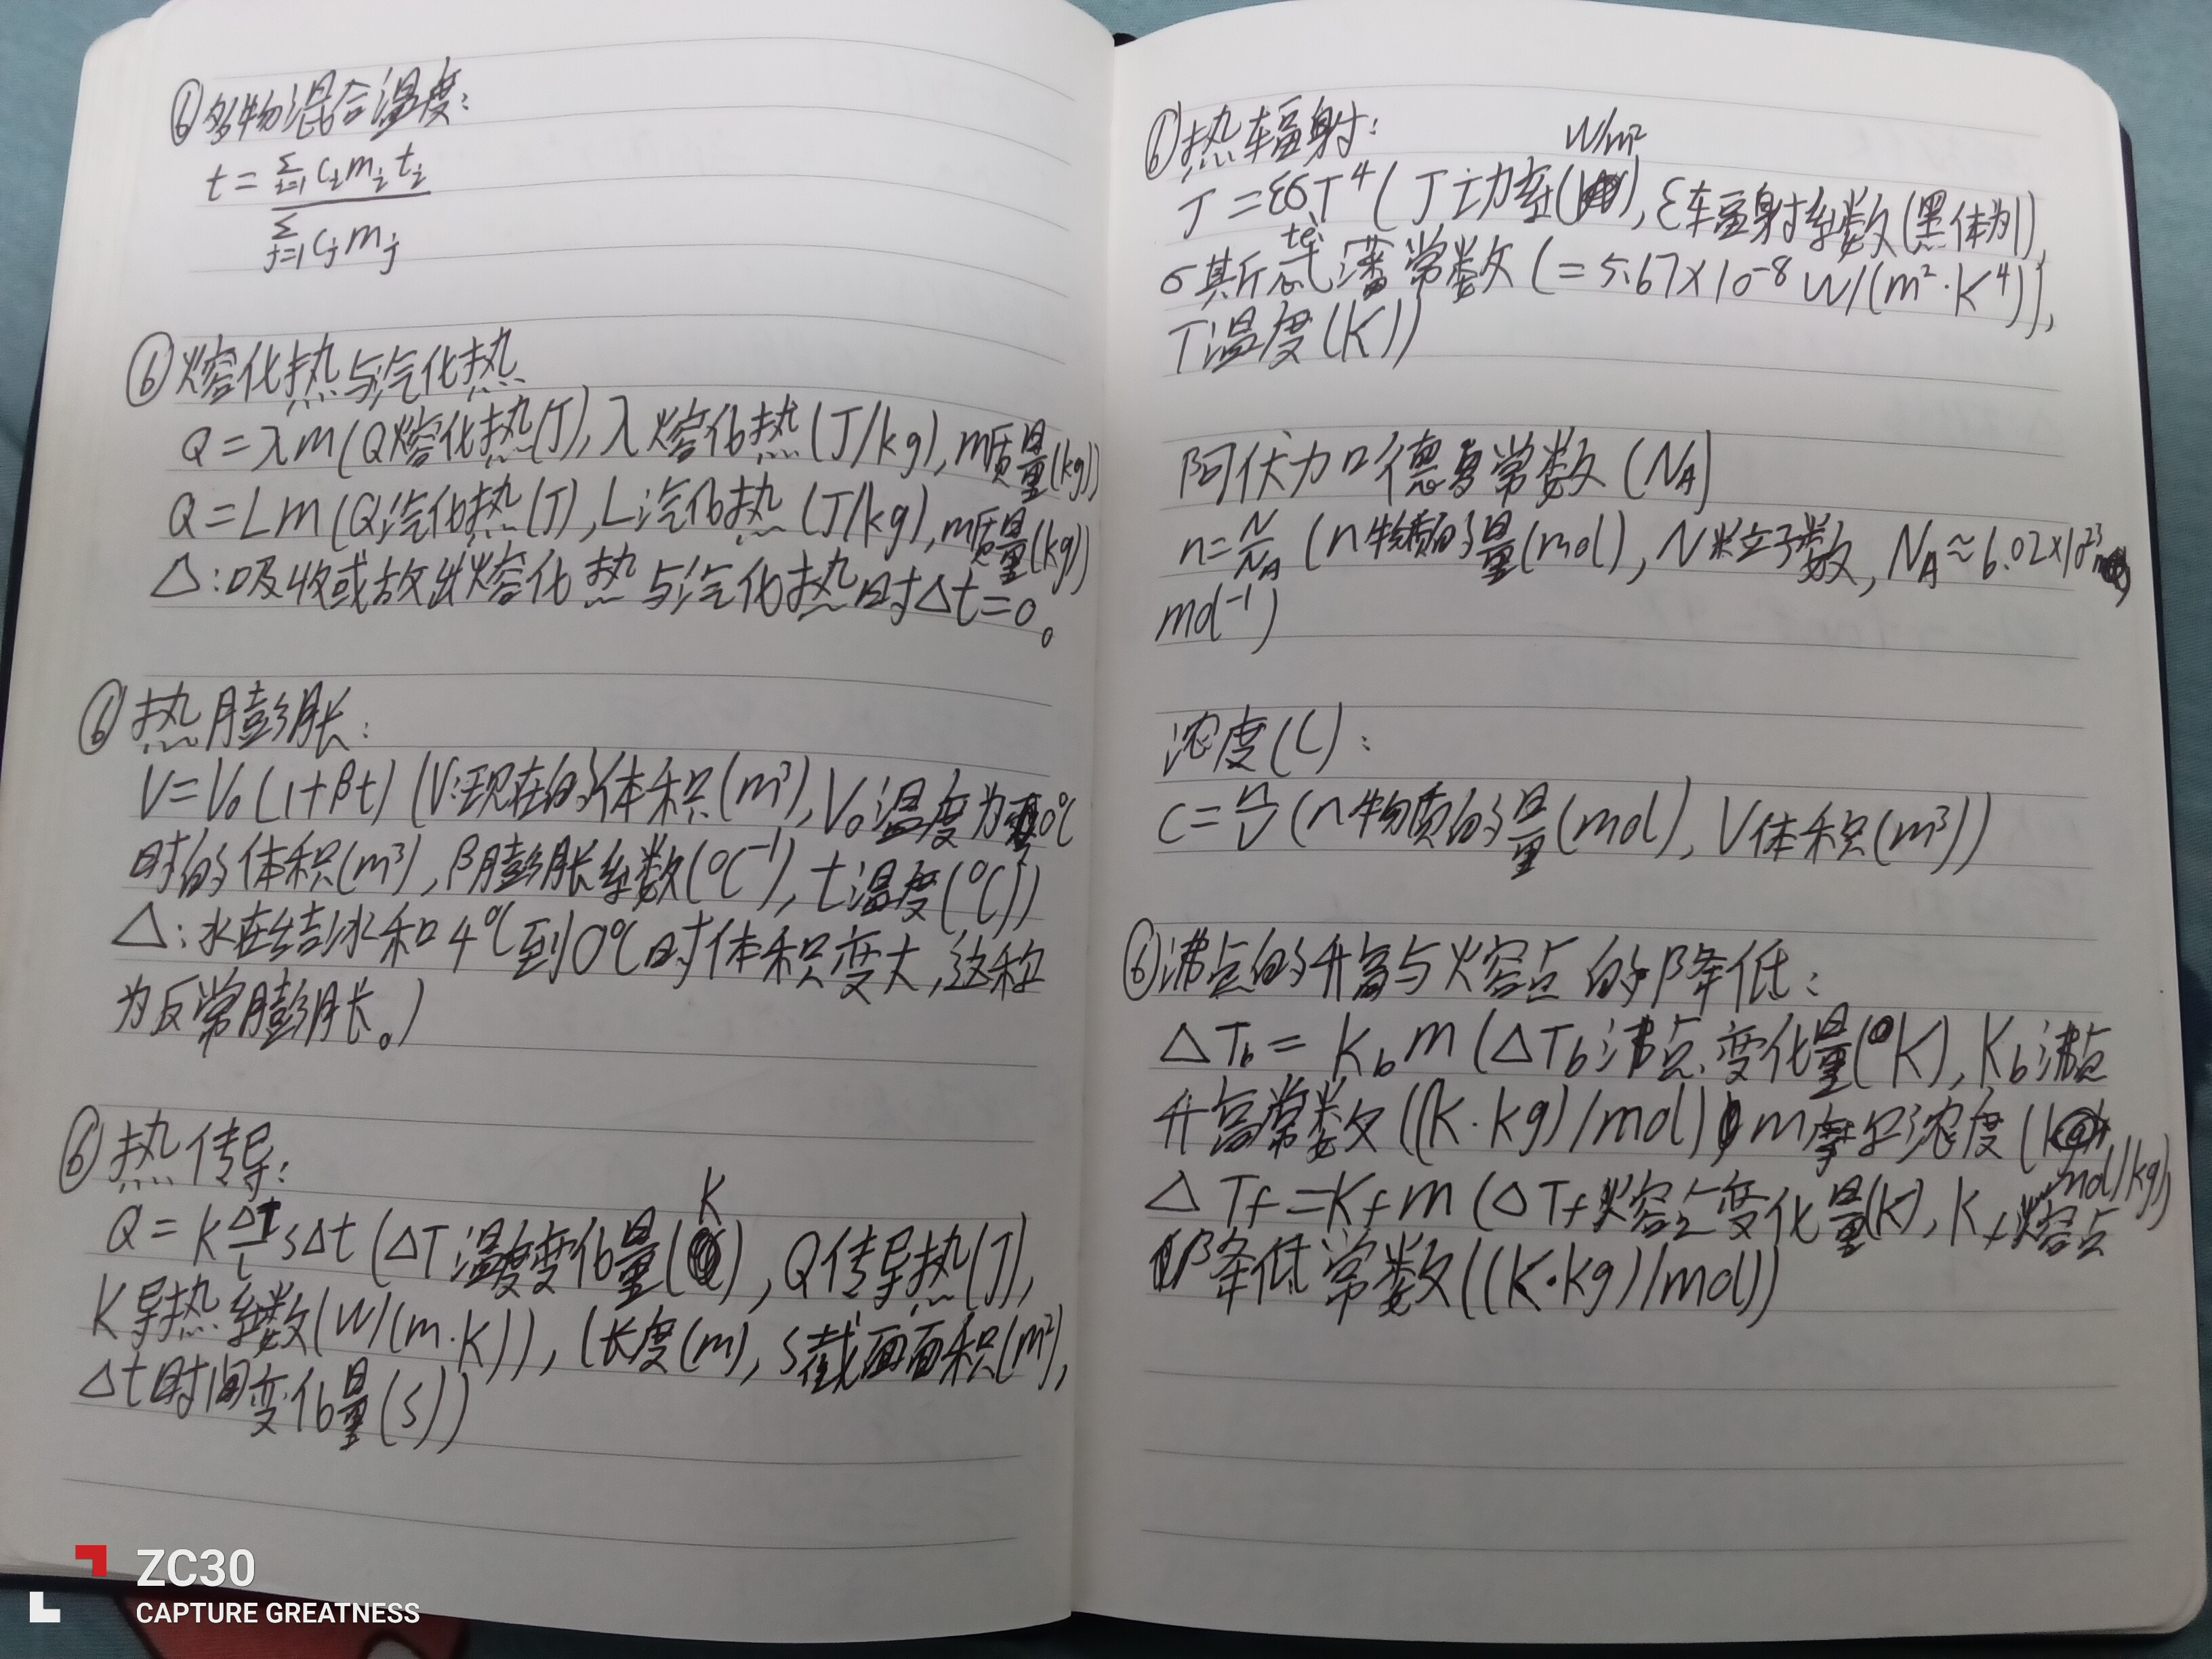 ⑥多物混合温度：
t = Σi=1 cᵢmᵢtᵢ / Σj=1 cⱼmⱼ
⑥熔化热与汽化热
Q=λm(Q熔化热(J), λ熔化热(J/kg), m质量(kg))
Q=Lm(Q汽化热(J), L汽化热(J/kg), m质量(kg))
△:吸收或放出熔化热与汽化热时Δt=0。
⑥热膨胀：
V=V₀(1+βt)(V:现在的体积(m³), V₀温度为0℃
时的体积(m³), β膨胀系数(℃⁻¹), t温度(℃))
△:水在结冰和4℃到0℃时体积变大,这称
为反常膨胀。)
⑥热传导：
Q=K ΔT/l SΔt(ΔT温度变化量(K), Q传导热(J),
K导热系数(W/(m·K)), l长度(m), S截面面积(m²),
Δt时间变化量(s))
⑥热辐射：
J=εσT⁴(J功率(W/m²), ε辐射系数(黑体为1),
σ斯忒(tè)藩常数(=5.67×10⁻⁸W/(m²·K⁴)),
T温度(K))
阿伏加德罗常数(N_A)
n=N/N_A(n物质的量(mol), N粒子数, N_A≈6.02×10²³
mol⁻¹)
浓度(C)：
C=n/V(n物质的量(mol), V体积(m³))
⑥沸点的升高与熔点的降低：
ΔT_b=K_b m(ΔT_b沸点变化量(K), K_b沸点
升高常数((K·kg)/mol), m摩尔浓度(mol/kg))
ΔT_f=K_f m(ΔT_f熔点变化量(K), K_f熔点
降低常数((K·kg)/mol))
ZC30
CAPTURE GREATNESS